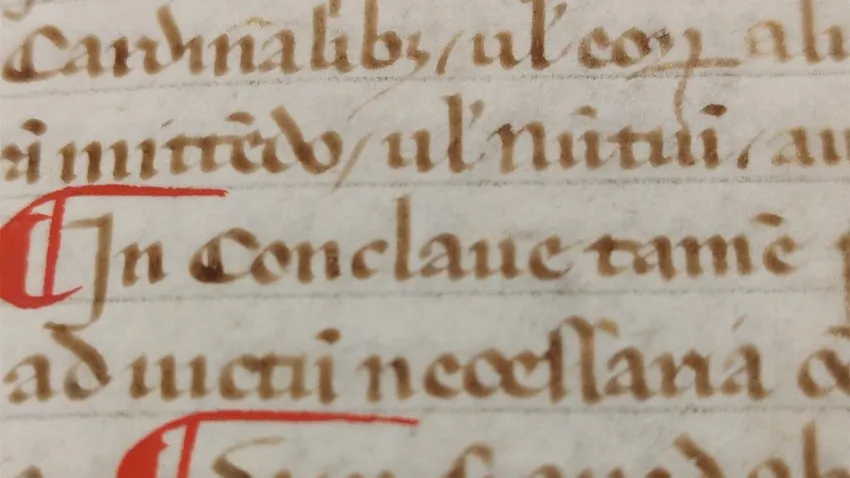 Cardīalibꝫ / ul̕ eoꝝ ali
ri mittēdo / ul̕ nūtiū / au
¶ In Conclaue tamē
ad uictū necessaria